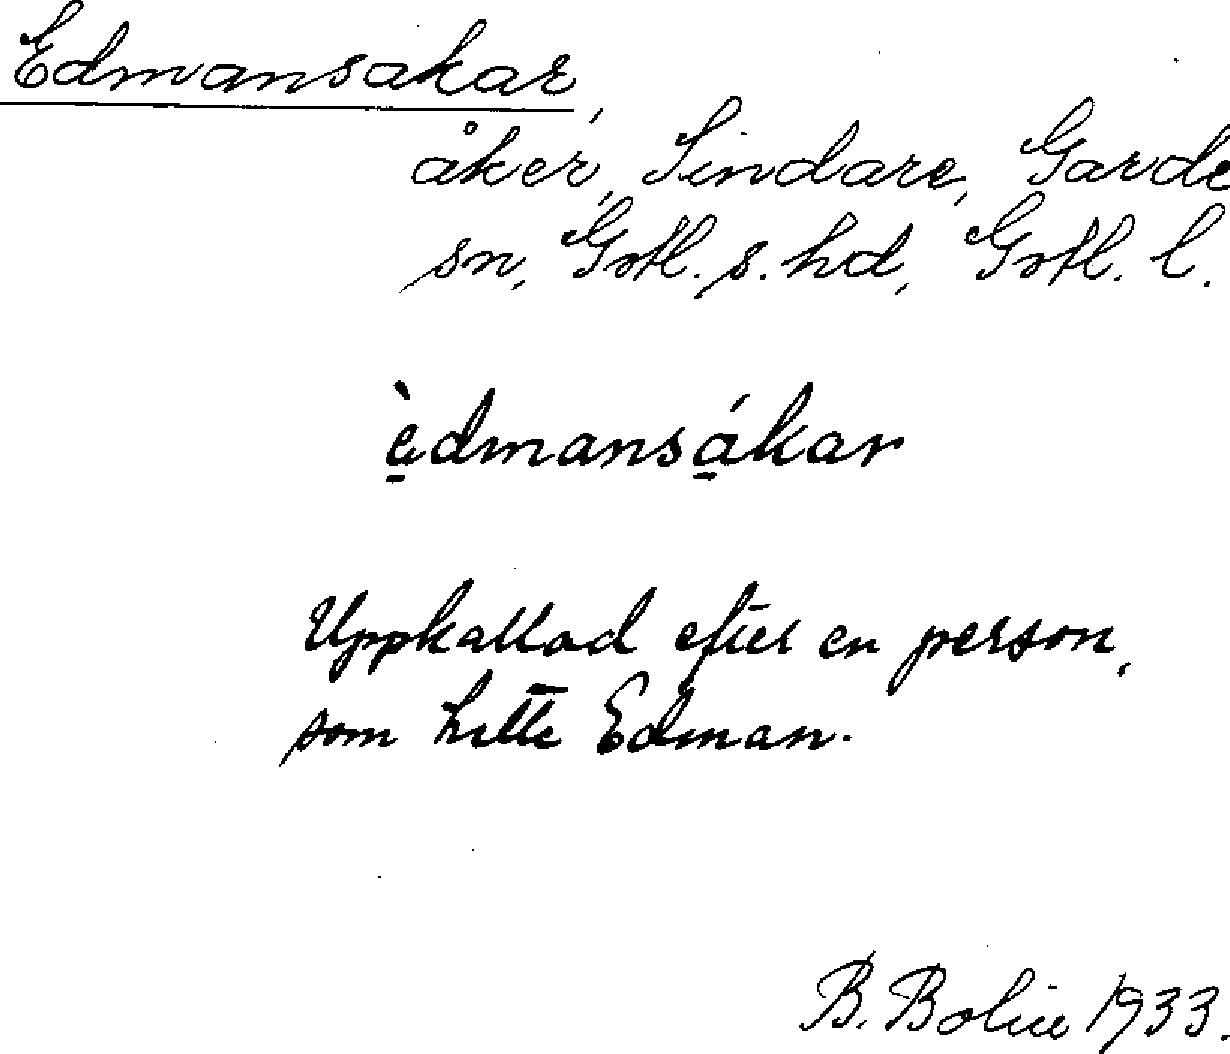 Edmansakar,
åker, Sindare, Garde
sn, Gotl. s. hd, Gotl. l.
è̱dmansá̱kar
Uppkallad efter en person,
som hette Edman.
B. Bolin 1933.